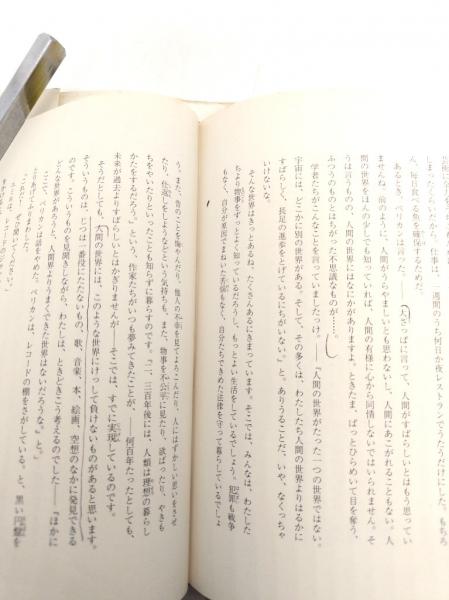 しまったくらいだから。仕事は、二週間のうち何日か夜レストランでうたうだけにした。もちろ
ん、毎日食べる魚を確保するために。
あるとき、ペリカンは言った。――「大ざっぱに言って、人間がすばらしいとはもう思ってい
ませんね、前のように。人間がうらやましいとも思わないし、人間にあこがれることもない。人
間の世界をほんの少しでも知っていれば、人間の有様に心から同情しないではいられません。そ
うは言うものの、人間の世界にはなにかがありますよ。ときたま、ぱっとひらめいて目を奪う、
ふつうのものとはちがった不思議なものが……。
学者たちがこんなことを言っていましたっけ――『人間の世界がたった一つの世界ではない。
宇宙には、どこかに別の世界がある。そして、その多くは、わたしたち人間の世界をはるかに
すばらしく、長足の進歩をとげているにちがいない』と。ありうることだ、いや、なくっちゃ
いけない。
そんな世界はきっとあるね、たくさんあるにきまっています。そこでは、みんなは、わたした
ちより物事をずっとよく知っているだろうし、もっとよい生活をしているでしょう。犯罪も戦争
もなく、自分が原因でまねいた天病もなく、自分たちできめた法律を守って暮らしているでしょ
う。また、昔のことを悔やんだり、他人の不幸を見てよろこんだり、人にはずかしい思いをさせ
たり、仕返しをしようなどという気持ちも、また、物事を不公平に見たり、欲ばったり、やきも
ちをやいたりといったことも知らずに暮らすのです。二、三百年後には、人類は理想の暮らし
かたをするだろう』という、作家たちがいつも夢みてきたことが、――何百年たったとしても、
未来が過去よりすばらしいとはかぎりませんが――そこでは、すでに実現しているのです。
だけども、人間の世界には、このような世界にけっして負けないものがあると思います。
そういうものは、じつは一番役にたたないもの、歌、音楽、本、絵画、空想のなかに発見できる
のです。こういうものを見聞きしながら、わたしは、ときどきこう考えるのでした――『ほかに
どんな世界があろうが、人間界よりうまくできた世界はないだろうな』と。
ここで、ペリカンは話をやめた。ペリカンは、レコードの棚をさがしている。と、黒い円盤を
とりあげてふりまわした。